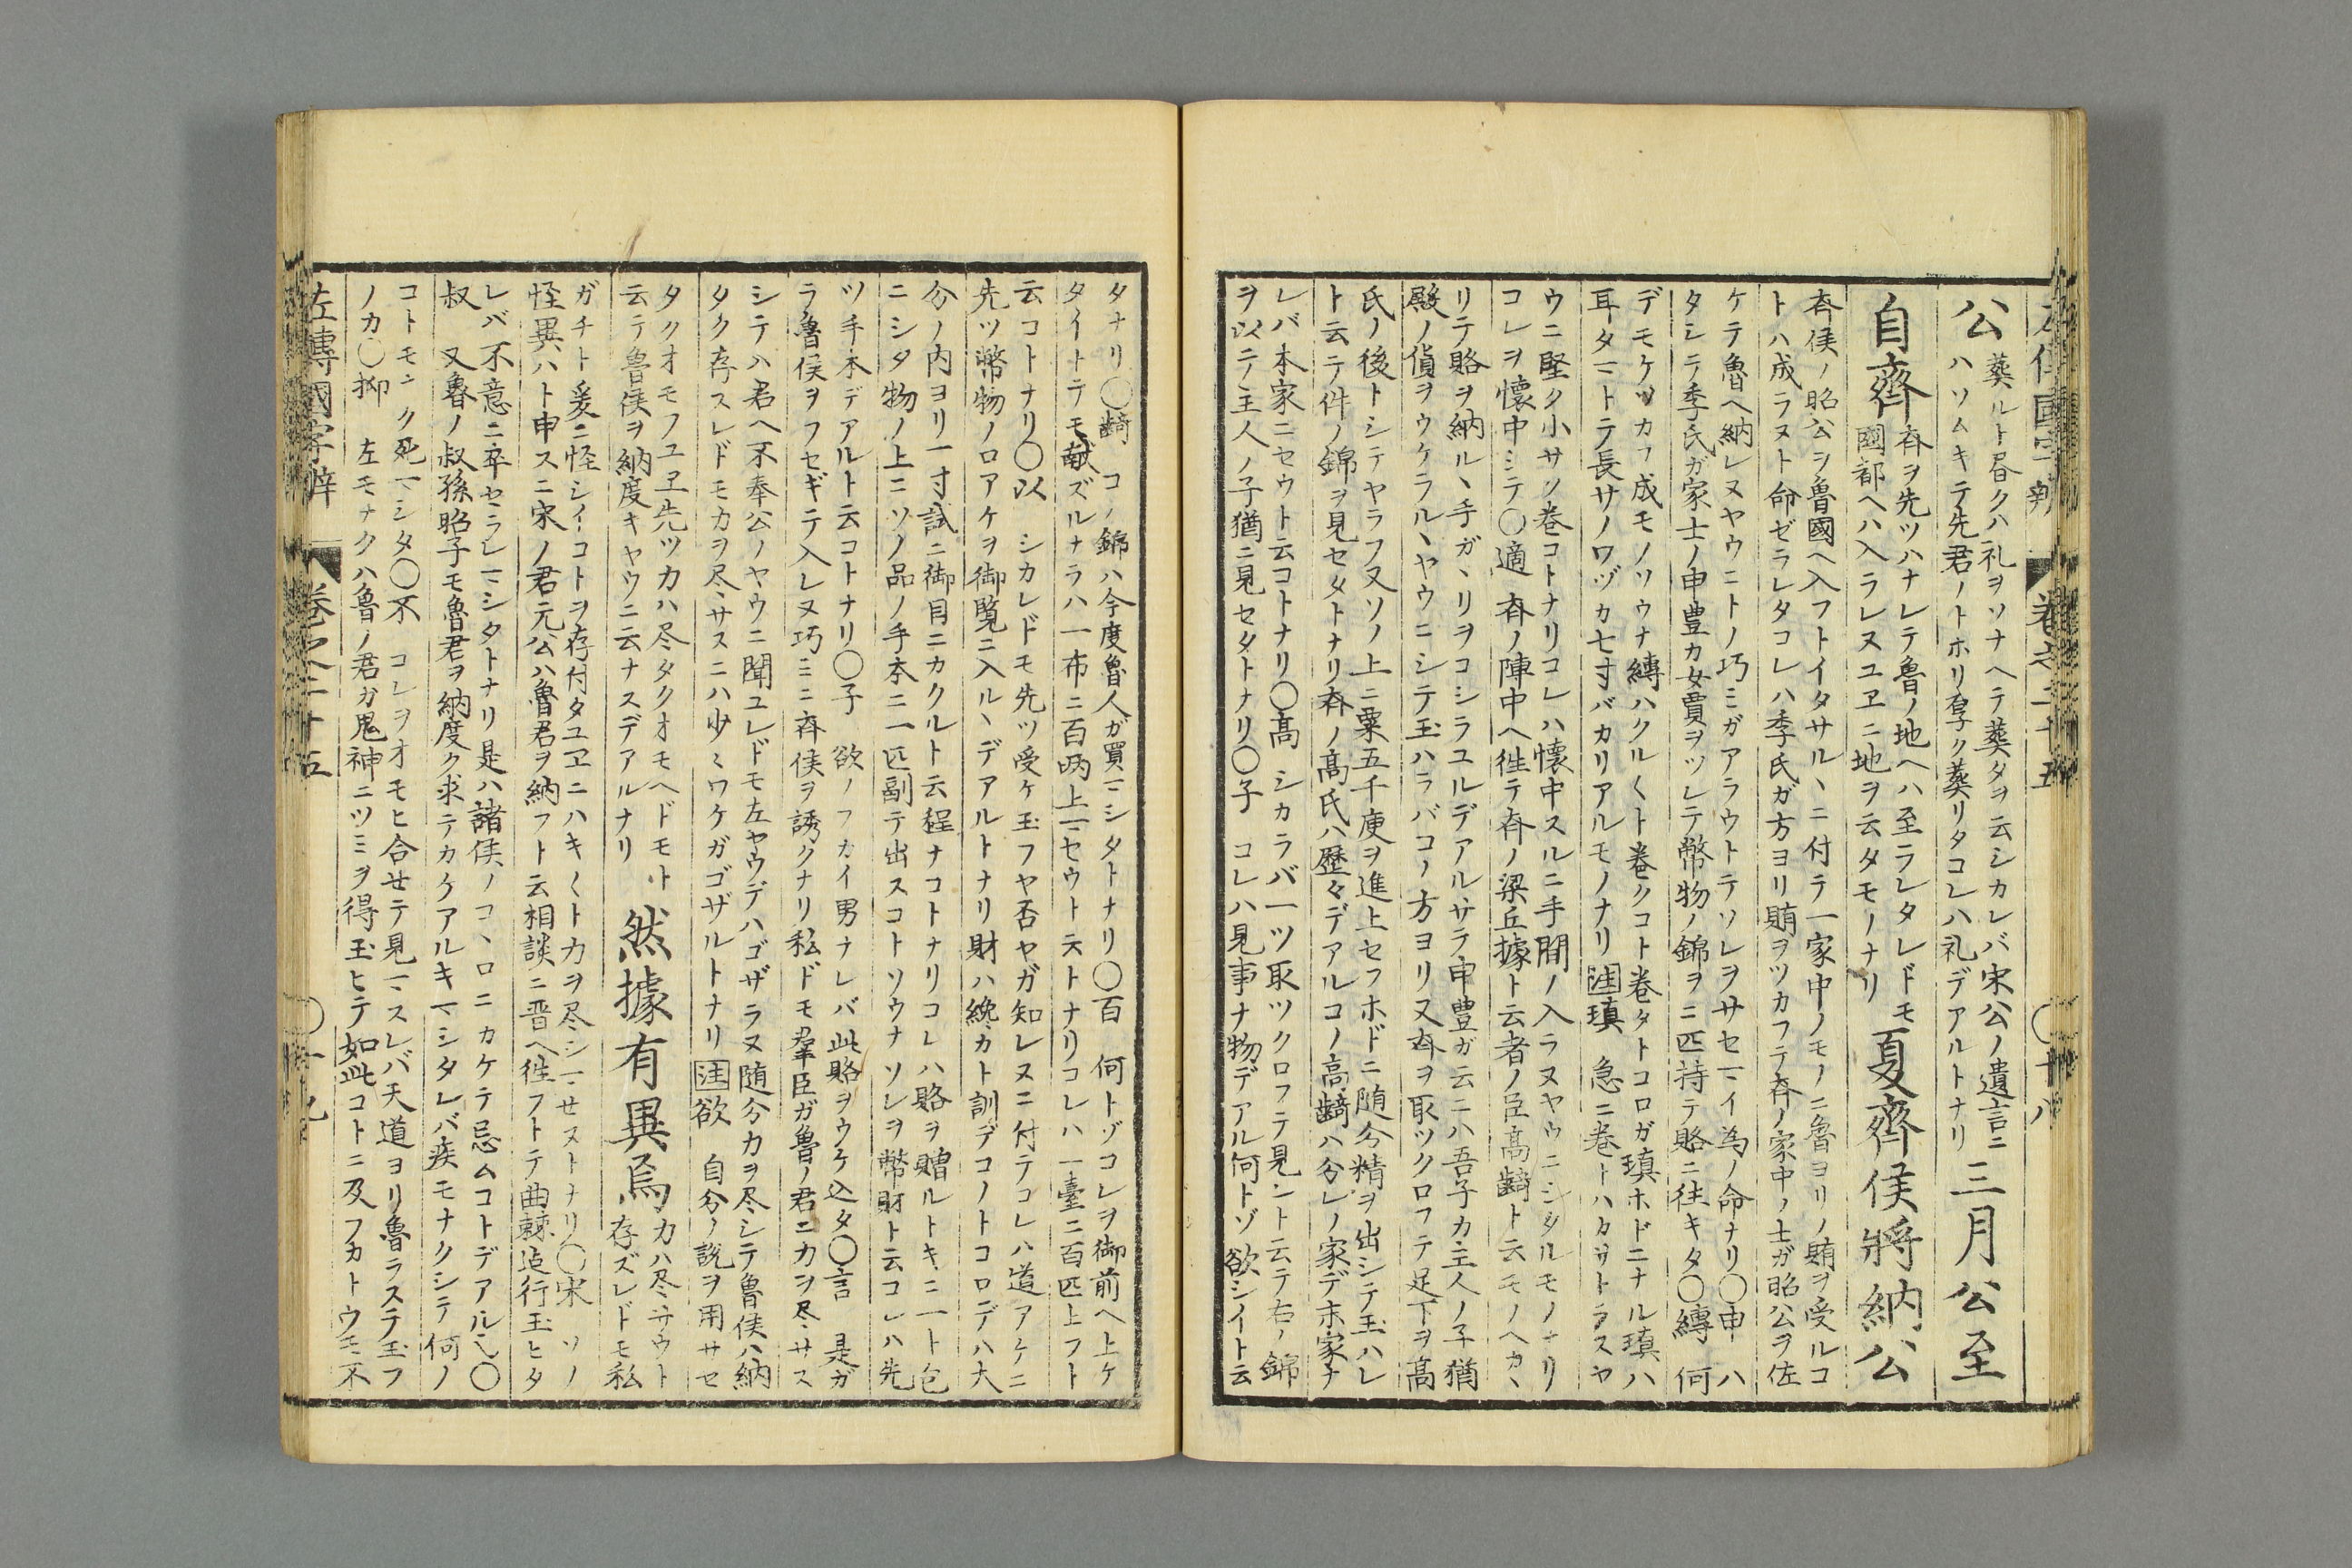 公
葬ルト昏クハ礼ヲソナヘテ葬タヲ云シカレバ宋公ノ遺言ニ
ハソムキテ先君ノトホリ厚ク葬リタコレハ礼デアルトナリ
三月公至
自齊
斉ヲ先ツハナレテ魯ノ地ヘハ至ラレタレドモ
國都ヘハ入ラレヌユヱニ地ヲ云タモノナリ
夏齊侯將納公
斉侯ノ昭公ヲ魯國ヘ入フトイタサルヽニ付テ一家中ノモノニ魯ヨリノ賄ヲ受ルコ
トハ成ラヌト命ゼラレタコレハ季氏ガ方ヨリ賄ヲツカフテ斉ノ家中ノ士ガ昭公ヲ佐
ケテ魯ヘ納レヌヤウニトノ巧ミガアラウトテソレヲサセマイ為ノ命ナリ〇申 ハ
タシテ季氏ガ家士ノ申豊カ女賈ヲツレテ幣物ノ錦ヲ二匹持テ賂ニ往キタ〇縳 何
デモケツカフ成モノソウナ縳ハクルクト巻クコト巻タトコロガ瑱ホドニナル瑱ハ
耳タマトテ長サノワヅカ七寸バカリアルモノナリ 注 瑱 急ニ巻トハカサトラスヤ
ウニ堅ク小サク巻コトナリコレハ懐中スルニ手間ノ入ラヌヤウニシタルモノナリ
コレヲ懐中シテ〇適 斉ノ陣中ヘ徃テ斉ノ梁丘據ト云者ノ臣髙齮ト云モノヘカヽ
リテ賂ヲ納ルヽ手ガヽリヲコシラユルデアルサテ申豊ガ云ニハ吾子カ主人ノ子猶
殿ノ償ヲウケラルヽヤウニシテ玉ハラバコノ方ヨリ又斉ヲ取ツクロフテ足下ヲ髙
氏ノ後トシテヤラフ又ソノ上ニ粟五千庾ヲ進上セフホドニ随分精ヲ出シテ玉ハレ
ト云テ件ノ錦ヲ見セタトナリ斉ノ髙氏ハ歴々デアルコノ高齮ハ分レノ家デ末家ナ
レバ本家ニセウト云コトナリ〇髙 シカラバ一ツ取ツクロフテ見ント云テ右ノ錦
ヲ以テ主人ノ子猶ニ見セタトナリ〇子 コレハ見事ナ物デアル何トゾ欲シイト云
タナリ〇齮 コノ錦ハ今度魯人ガ買マシタトナリ〇百 何トゾコレヲ御前ヘ上ケ
タイトテモ献ズルナラハ一布ニ百両上マセウト云トナリコレハ一臺ニ百匹上フト
云コトナリ〇以 シカレドモ先ツ受ケ玉フヤ否ヤガ知レヌニ付テコレハ道アケニ
先ツ幣物ノロアケヲ御覧ニ入ルヽデアルトナリ財ハ纔カト訓デコノトコロデハ大
分ノ内ヨリ一寸試ニ御目ニカクルト云程ナコトナリコレハ賂ヲ贈ルトキニ一ト包
ニシタ物ノ上ニソノ品ノ手本ニ一匹副テ出スコトソウナソレヲ幣財ト云コレハ先
ツ手本デアルト云コトナリ〇子 欲ノフカイ男ナレバ此賂ヲウケ込タ〇言 是ガ
ラ魯侯ヲフセギテ入レヌ巧ミニ斉侯ヲ誘クナリ私ドモ羣臣ガ魯ノ君ニカヲ尽サス
シテハ君ヘ不奉公ノヤウニ聞ユレドモ左ヤウデハゴザラヌ随分力ヲ尽シテ魯侯ハ納
タク存スレドモ力ヲ尽サスニハ少〻ワケガゴザルトナリ 注 欲 自分ノ説ヲ用サセ
タクオモフユヱ先ツカハ尽タクオモヘドモト
云テ魯侯ヲ納度キヤウニ云ナスデアルナリ
然據有異焉
力ハ尽サウト
存ズレドモ私
ガチト爰ニ怪シイコトヲ存付タユヱニハキクト力ヲ尽シマセヌトナリ〇宋 ソノ
怪異ハト申スニ宋ノ君元公ハ魯君ヲ納フト云相談ニ晋ヘ徃フトテ曲棘迠行玉ヒタ
レバ不意ニ卒セラレマシタトナリ是ハ諸侯ノコヽロニカケテ忌ムコトデアル〇
叔 又魯ノ叔孫昭子モ魯君ヲ納度ク求テカケアルキマシタレバ疾モナクシテ何ノ
コトモナク死マシタ〇不 コレヲオモヒ合せテ見マスレバ天道ヨリ魯ラステ玉フ
ノカ〇抑 左モナクハ魯ノ君ガ鬼神ニツミヲ得玉ヒテ如此コトニ及フカトウモ不
左傳國字辨 巻之二十五 〇十九